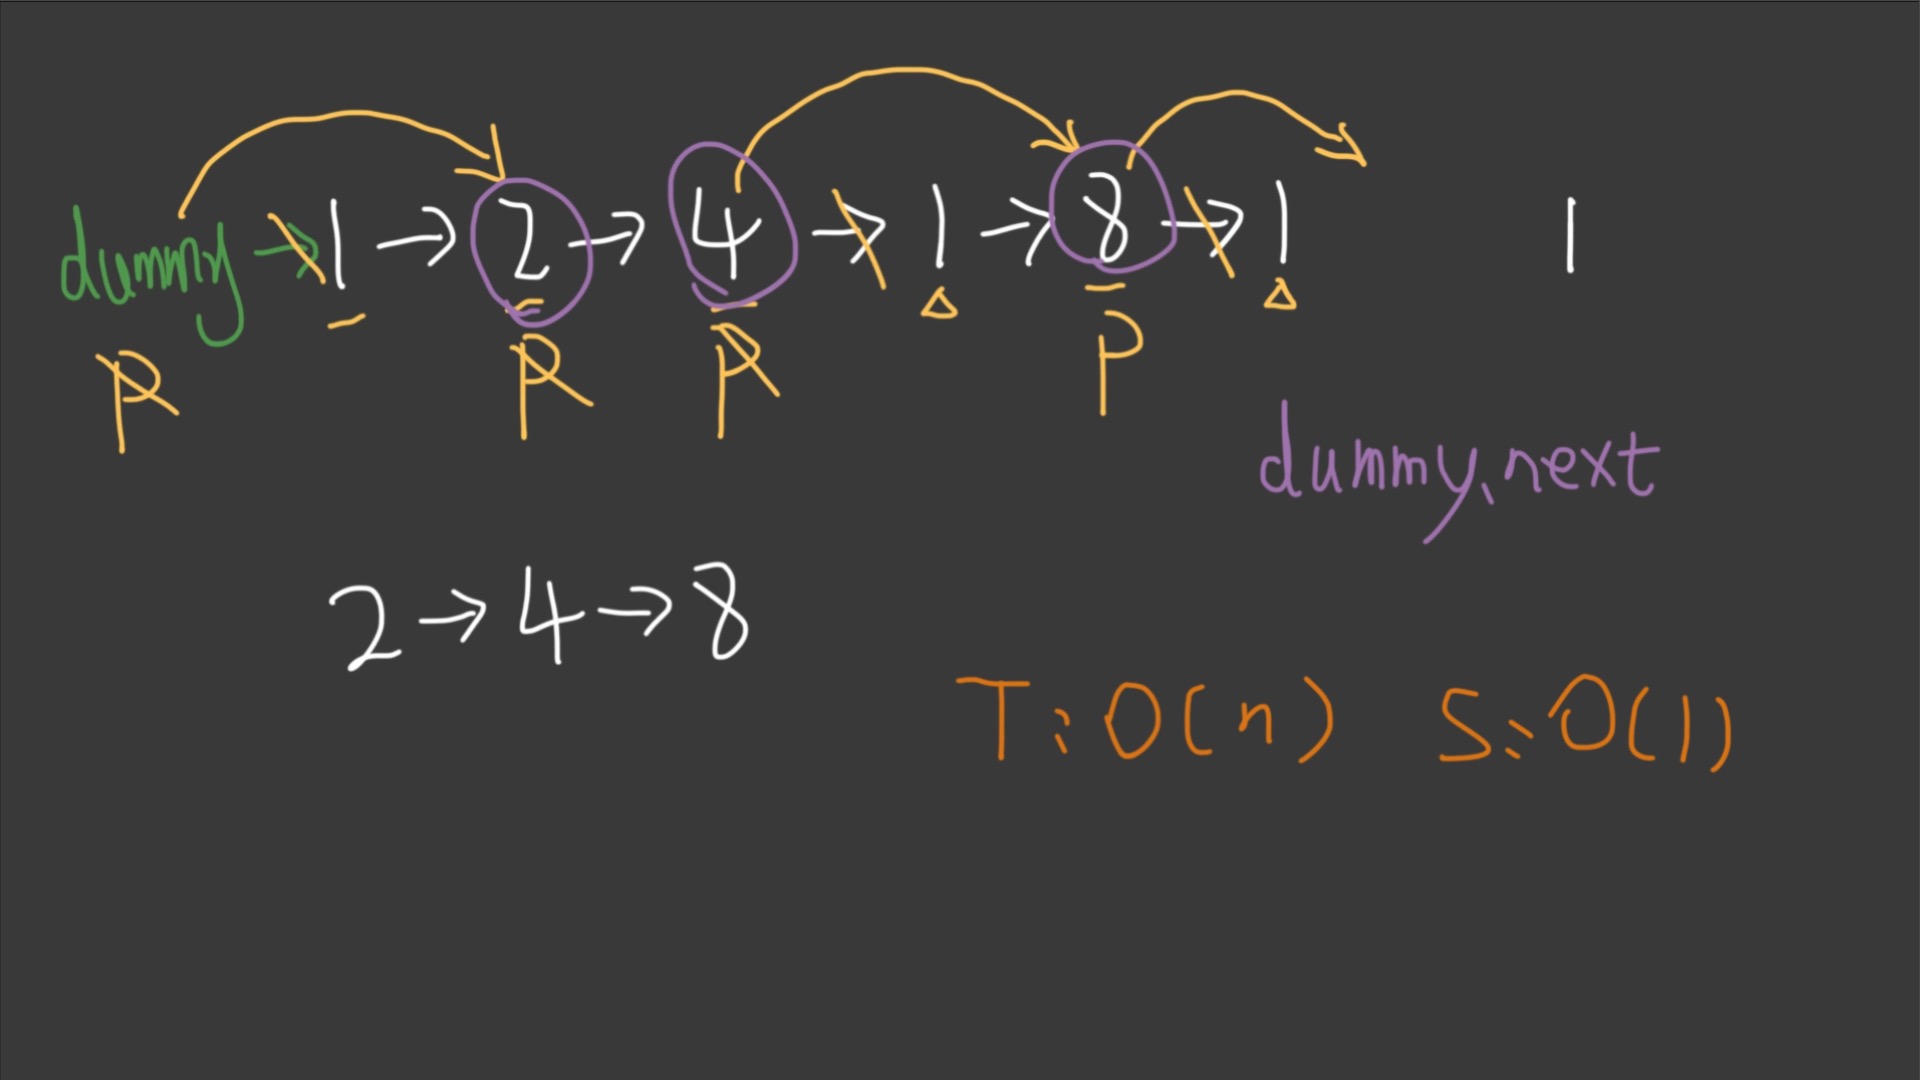 dummy → 1 → 2 → 4 → 1 → 8 → 1 1
P P P P
dummy.next
2 → 4 → 8
T: O(n) S: O(1)